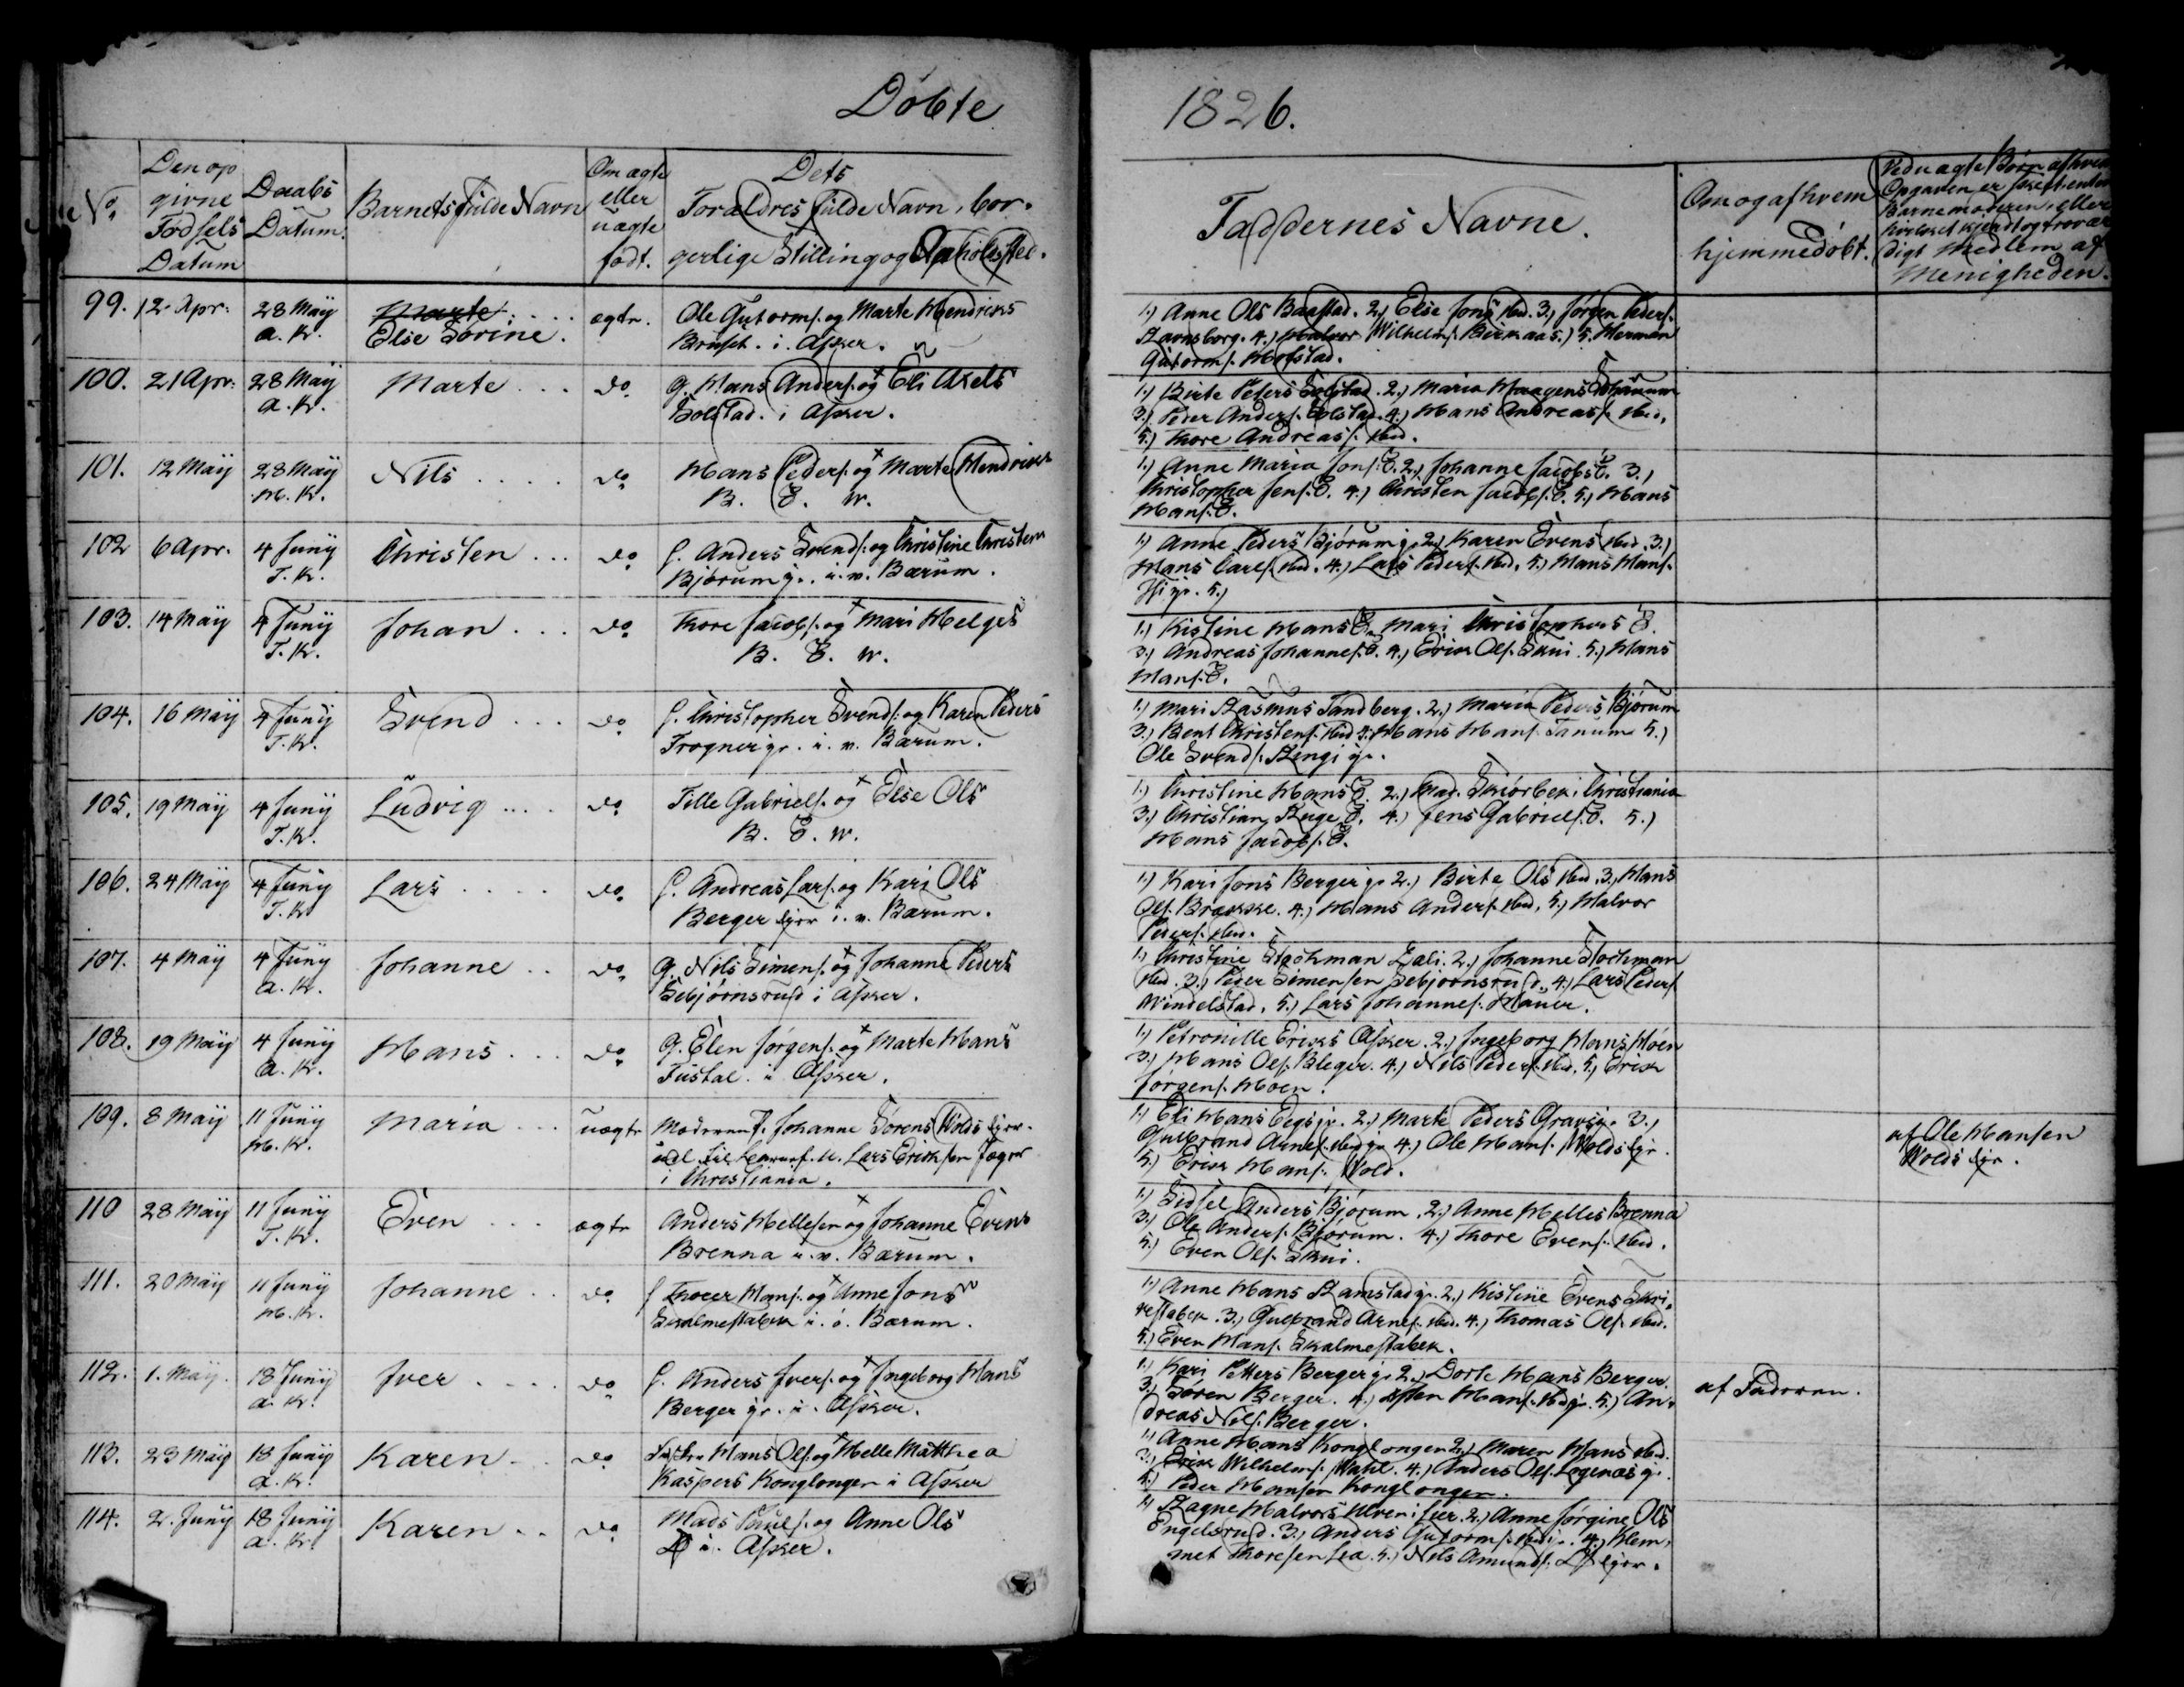 Döbte 1826.
No.
Den op
givne
Födsels
Datum
Daabs
Datum.
Barnets fulde Navn
Om ægte
eller
uægte
født.
Dets
Forældres fulde Navn, bor-
gerlige Stilling og Opholdssted.
Faddernes Navne.
Om og af hvem
hjemmedöbt.
Ved uægte Børn af hvem
Opgaven er skeet: enten
Barnemoderen, eller
hvilket kjendt og trovær
digt Medlem af
Menigheden.
99. 12 Apr: 28 Maÿ Marte . . . ægte. Ole Gutormſ. og Marte Hendriks
A. K. Else Sorine. Bruset. i Asker.
1.) Anne Ols Baastad. 2.) Else Jons ibd. 3.) Jörgen Peders.
Ravnsborg. 4.) Halvor Wilhelmſ. Birkaas.) 5. Herman
Gutormſ. Hofstad.
100. 21 Apr: 28 Maÿ Marte . . . do G. Hans Anderſ. og Eli Axels
A. K. Solstad. i Asker.
1.) Birte Peders Solstad. 2.) Maria Haagens
3.) Peder Anderſ. Solstad. 4.) Hans Andreasſ. ibd.
5.) Thore Andreasſ. ibd.
101. 12 Maÿ 28 Maÿ Nils . . . . do Hans Pederſ. og Marte Hendriks
H. K. B. E. W.
1.) Anne Maria Jonſ. E. 2.) Johanne Jacobs E. 3.)
Christopher Jenſ. E. 4.) Christen Jacobſ. E. 5.) Hans
Hanſ. E.
102 6 Apr. 4 Junÿ Christen . . . do S. Anders Svendſ. og Christine Christens
T. K. Bjørum gr. i v. Bærum.
1.) Anne Peders Bjørum gr. 2.) Karen Evens ibd. 3.)
Hans Carlſ. ibd. 4.) Lars Pederſ. ibd. 5.) Hans Hanſ.
103. 14 Maÿ 4 Junÿ Johan . . . do Thore Jacobſ. og Mari Helges
T. K. B. E. W.
1.) Kistine Hans E. Mari Christophers E.
3.) Andreas Johannesſ. E. 4.) Erik Olſ. Skui. 5.) Hans
Hanſ. E.
104. 16 Maÿ 4 Junÿ Svend . . . do S. Christopher Svendſ. og Karen Peders
T. K. Frogner gr. i. v. Bærum.
1.) Mari Rasmus Tandberg. 2.) Maria Peders Bjørum
3.) Bent Christenſ. ibd. 4.) Hans Hanſ. Tanum 5.)
Ole Svendſ. Ringi gr.
105. 19 Maÿ 4 Junÿ Ludvig . . . do Tille Gabrielſ. og Else Ols
T. K. B. E. W.
1.) Christine Hans E. 2.) Mad. Skiørbek i Christiania
3.) Christian Ruge E. 4.) Jens Gabrielſ. E. 5.)
Hans Jacobſ. E.
106. 24 Maÿ 4 Junÿ Lars . . . . do S. Andreas Larſ. og Kari Ols
T. K. Berger Ejer i. v. Bærum.
1.) Kari Jons Berger gr 2.) Birte Ols ibd. 3.) Hans
Olſ. Brække. 4.) Hans Anderſ. ibd. 5.) Halvor
Pederſ. ibd.
107. 4 Maÿ 4 Junÿ Johanne . . do G. Nils Simenſ. og Johanne Peders
A. K. Sebjørnsrud i Asker.
1.) Christine Stochman Lali. 2.) Johanne Stochman
ibd. 3.) Peder Simensen Sebjørnsrud. 4.) Lars Pederſ.
Windelstad. 5.) Lars Johannesſ. Hauer.
108. 19 Maÿ 4 Junÿ Hans . . . do G. Elen Jörgenſ. og Marte Hans
A. K. Fustal. i Asker.
1.) Petronille Eriks Asker. 2.) Ingeborg Hans Moen
3.) Hans Olſ. Bleger. 4.) Nils Pederſ. ibd. 5.) Erik
Jörgenſ. Moen.
109. 8 Maÿ 11 Junÿ Maria . . . uægte Moderen P. Johanne Sörens Wolds Ejer.
H. K. udl. til Barnef. U. Lars Eriksen Jæger
i Christiania.
1.) Eli Hans Eegs gr. 2.) Marte Peders Gravs gr. 3.)
Gulbrand Arneſ. ibd gr 4.) Ole Hanſ. Wolds Ejr.
5.) Erik Hanſ. Wold.
af Ole Hansen
Wolds Ejr.
110 28 Maÿ 11 Junÿ Even . . . ægte Anders Hellesen og Johanne Evens
T. K. Brenna i. v. Bærum.
1.) Sidsel Anders Bjørum. 2.) Anne Helles Brenna
3.) Ole Anderſ. Bjørum. 4.) Thore Evenſ. ibd.
5.) Even Olſ. Skui.
111. 20 Maÿ 11 Junÿ Johanne . . do S Thoer Hanſ. og Anne Jons
H. K. Skalmestabek i. ö. Bærum.
1.) Anne Hans Ramstad gr. 2.) Kistine Evens Skri-
vestabek. 3.) Gulbrand Arneſ. ibd. 4.) Thomas Olſ. ibd.
5.) Even Hanſ. Skalmestabek.
112. 1. Maÿ. 18 Junÿ Iver . . . . do S. Anders Iverſ. og Ingeborg Hans
A. K. Berger gr. i. Asker.
1.) Kari Petters Berger gr 2.) Dorte Hans Berger
3.) Sören Berger. 4.) Hanſ. ibd gr. 5.) An-
dreas Nilſ. Berger.
af Faderen.
113. 23 Maÿ 18 Junÿ Karen . . do Hans Olſ. og Helle Matthea
A. K. Kaspers Konglongen i Asker
1.) Anne Hans Konglongen 2.) Maren Hans ibd.
3.) Erik Wilhelmſ. Wahl. 4.) Anders Olſ. Løgenæs gr.
5.) Peder Hansen Konglongen.
114. 2. Junÿ 18 Junÿ Karen . . do Mads Poulſ. og Anne Ols
A. K. i. Asker.
1.) Ragne Halvors Ulven i Lier. 2.) Anne Jörgine Ols
Engelsrud. 3.) Anders Gutormſ. 4.) Klem-
met Thoresen Lea. 5.) Nils Amundſ. Ejer.